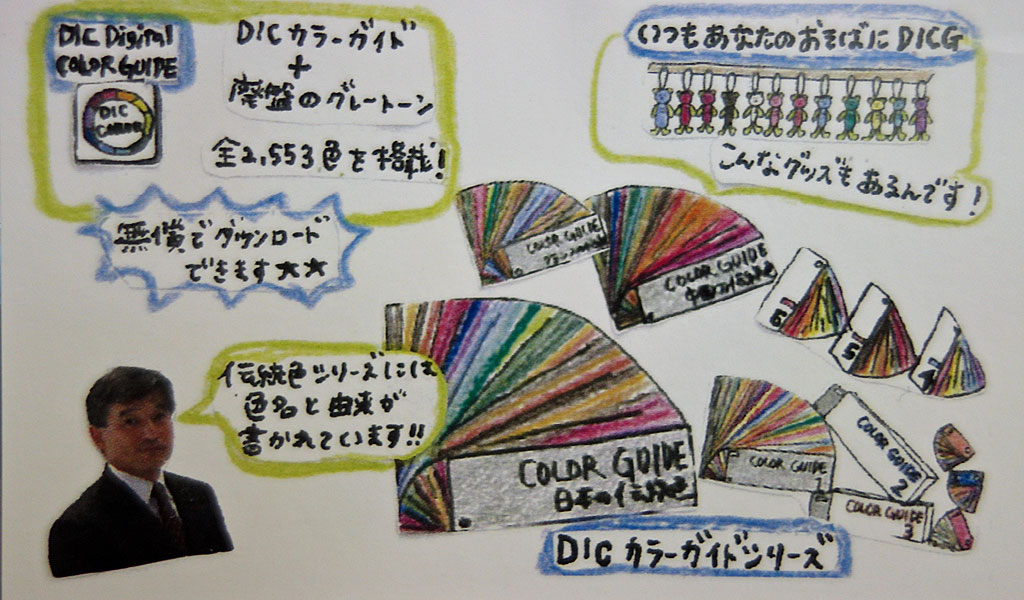 DIC Digital
COLOR GUIDE
DIC
COLOR
DICカラーガイド
+
廃盤のグレートーン
全2,553色を搭載!
無償でダウンロード
できます★★
いつもあなたのおそばにDICG
こんなグッズもあるんです!
COLOR GUIDE
COLOR GUIDE
中国の伝統色
6
5
4
伝統色シリーズには
色名と由来が
書かれています!!
COLOR GUIDE
日本の伝統色
COLOR GUIDE
1
COLOR GUIDE
2
COLOR GUIDE
3
DICカラーガイドシリーズ